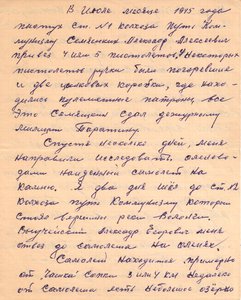 В Июле месяце 1975 года
пастух ст. №1 колхоза Путь Ком-
мунизму Семяшкин Александр Алексеевич
привёз 4 или 5 пистолетов. У некоторых
пистолетов ручки были погоревшие
и две цинковых коробки, где нахо-
дились пулемётные патроны, все
это Семяшкин сдал дежурному
милиции
Спустя несколько дней, меня
направили исследовать
найденный самолёт на
Я два дня шёл до ст. №2
колхоза Путь Коммунизму которых
стояло вершины реки
Александр Егорович меня
отвёз до самолёта на оленях.
Самолёт находится примерно
от сопки 3 или 4 км недалеко
от самолёта есть небольшое озерко